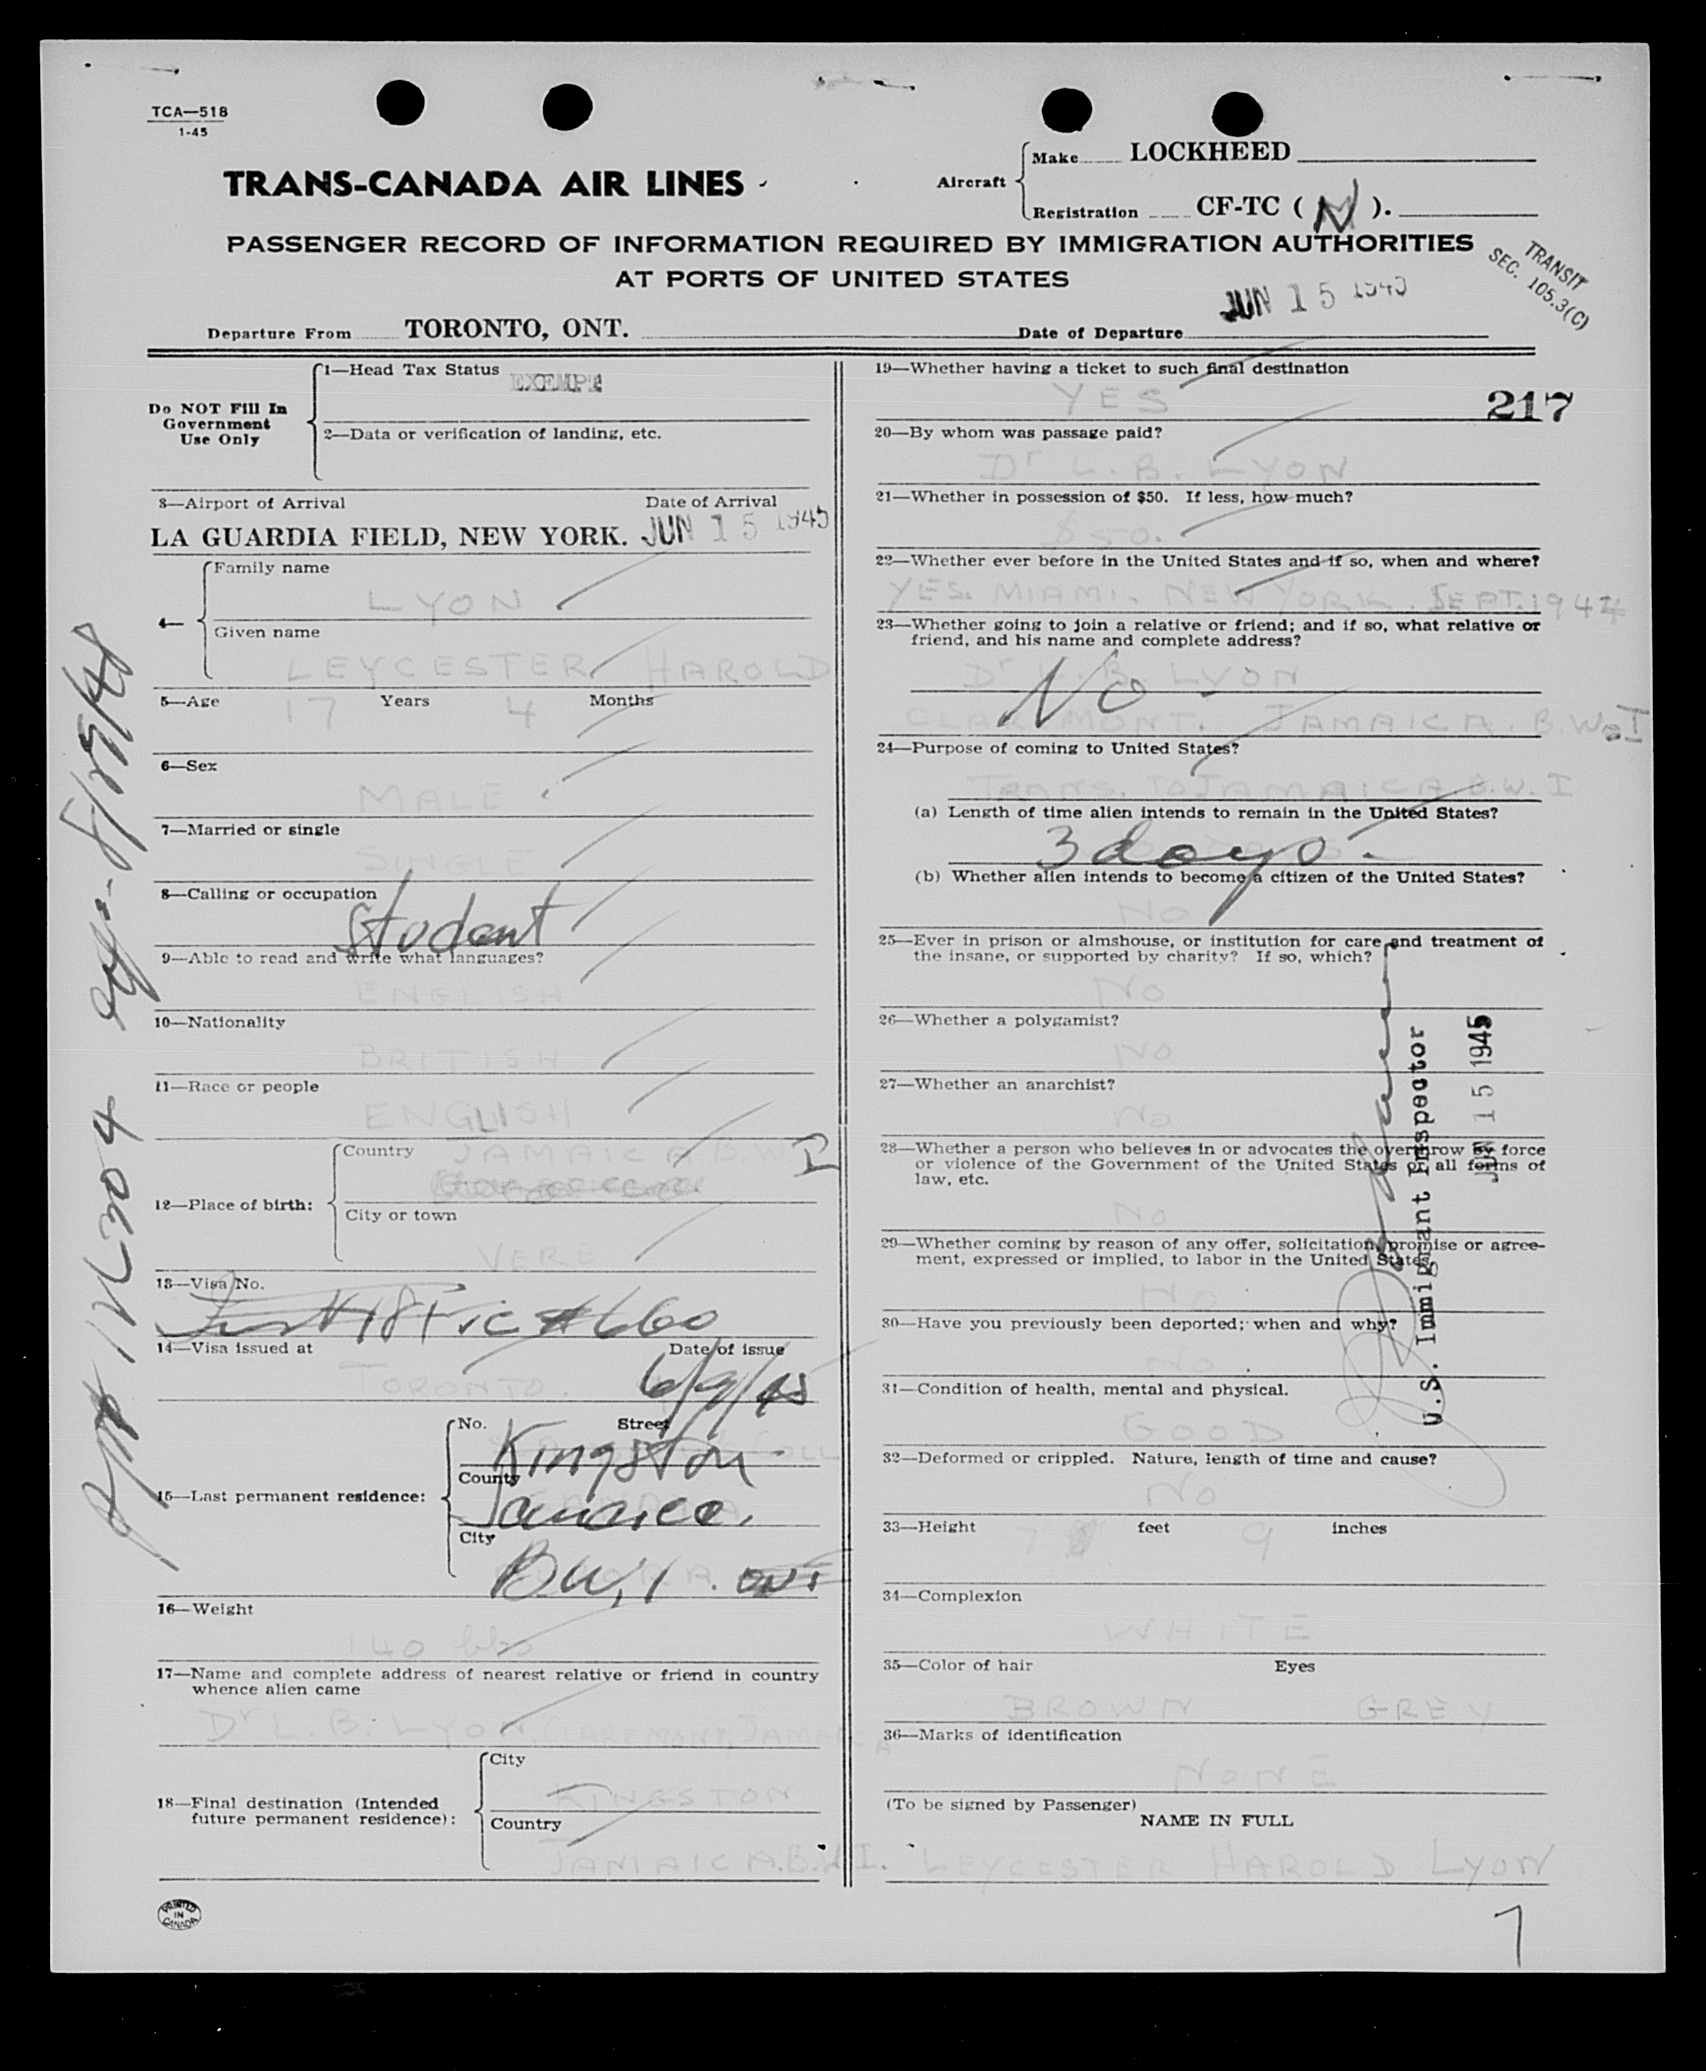 TCA—518
1-45
TRANS-CANADA AIR LINES
Aircraft
Make LOCKHEED
Registration CF-TC ( N ).
PASSENGER RECORD OF INFORMATION REQUIRED BY IMMIGRATION AUTHORITIES
AT PORTS OF UNITED STATES
TRANSIT
SEC. 105.3(C)
Departure From TORONTO, ONT. Date of Departure JUN 15 1945
Do NOT Fill In
Government
Use Only
1—Head Tax Status EXEMPT
2—Data or verification of landing, etc.
3—Airport of Arrival Date of Arrival
LA GUARDIA FIELD, NEW YORK. JUN 15 1945
4—
Family name
LYON
Given name
LEYCESTER HAROLD
5—Age 17 Years 4 Months
6—Sex
MALE
7—Married or single
SINGLE
8—Calling or occupation
Student
9—Able to read and write what languages?
ENGLISH
10—Nationality
BRITISH
11—Race or people
ENGLISH
12—Place of birth:
Country JAMAICA B.W.I
City or town
VERE
13—Visa No.
#660
14—Visa issued at Date of issue
TORONTO. 6/9/45
15—Last permanent residence:
No. Street
Kingston
County
Jamaica,
City
B.W.I. ONT
16—Weight
140 lbs
17—Name and complete address of nearest relative or friend in country
whence alien came
Dr L. B. LYON, CLAREMONT, JAMAICA
18—Final destination (Intended
future permanent residence):
City
KINGSTON
Country
JAMAICA. B.W.I.
PRINTED
IN
CANADA
19—Whether having a ticket to such final destination
YES
217
20—By whom was passage paid?
Dr L. B. LYON
21—Whether in possession of $50. If less, how much?
$50.
22—Whether ever before in the United States and if so, when and where?
YES. MIAMI. NEW YORK. SEPT. 1944
23—Whether going to join a relative or friend; and if so, what relative or
friend, and his name and complete address?
Dr L. B. LYON
No
CLAREMONT. JAMAICA. B.W.I
24—Purpose of coming to United States?
TRANS. TO JAMAICA. B.W.I
(a) Length of time alien intends to remain in the United States?
3 days
(b) Whether alien intends to become a citizen of the United States?
No
25—Ever in prison or almshouse, or institution for care and treatment of
the insane, or supported by charity? If so, which?
No
26—Whether a polygamist?
No
27—Whether an anarchist?
No
28—Whether a person who believes in or advocates the overthrow by force
or violence of the Government of the United States or all forms of
law, etc.
No
29—Whether coming by reason of any offer, solicitation, promise or agree-
ment, expressed or implied, to labor in the United States
No
30—Have you previously been deported; when and why?
No
31—Condition of health, mental and physical.
GOOD
32—Deformed or crippled. Nature, length of time and cause?
No
33—Height feet 9 inches
34—Complexion
WHITE
35—Color of hair Eyes
BROWN GREY
36—Marks of identification
NONE
(To be signed by Passenger)
NAME IN FULL
LEYCESTER HAROLD LYON
U.S. Immigrant Inspector
JUN 15 1945
7